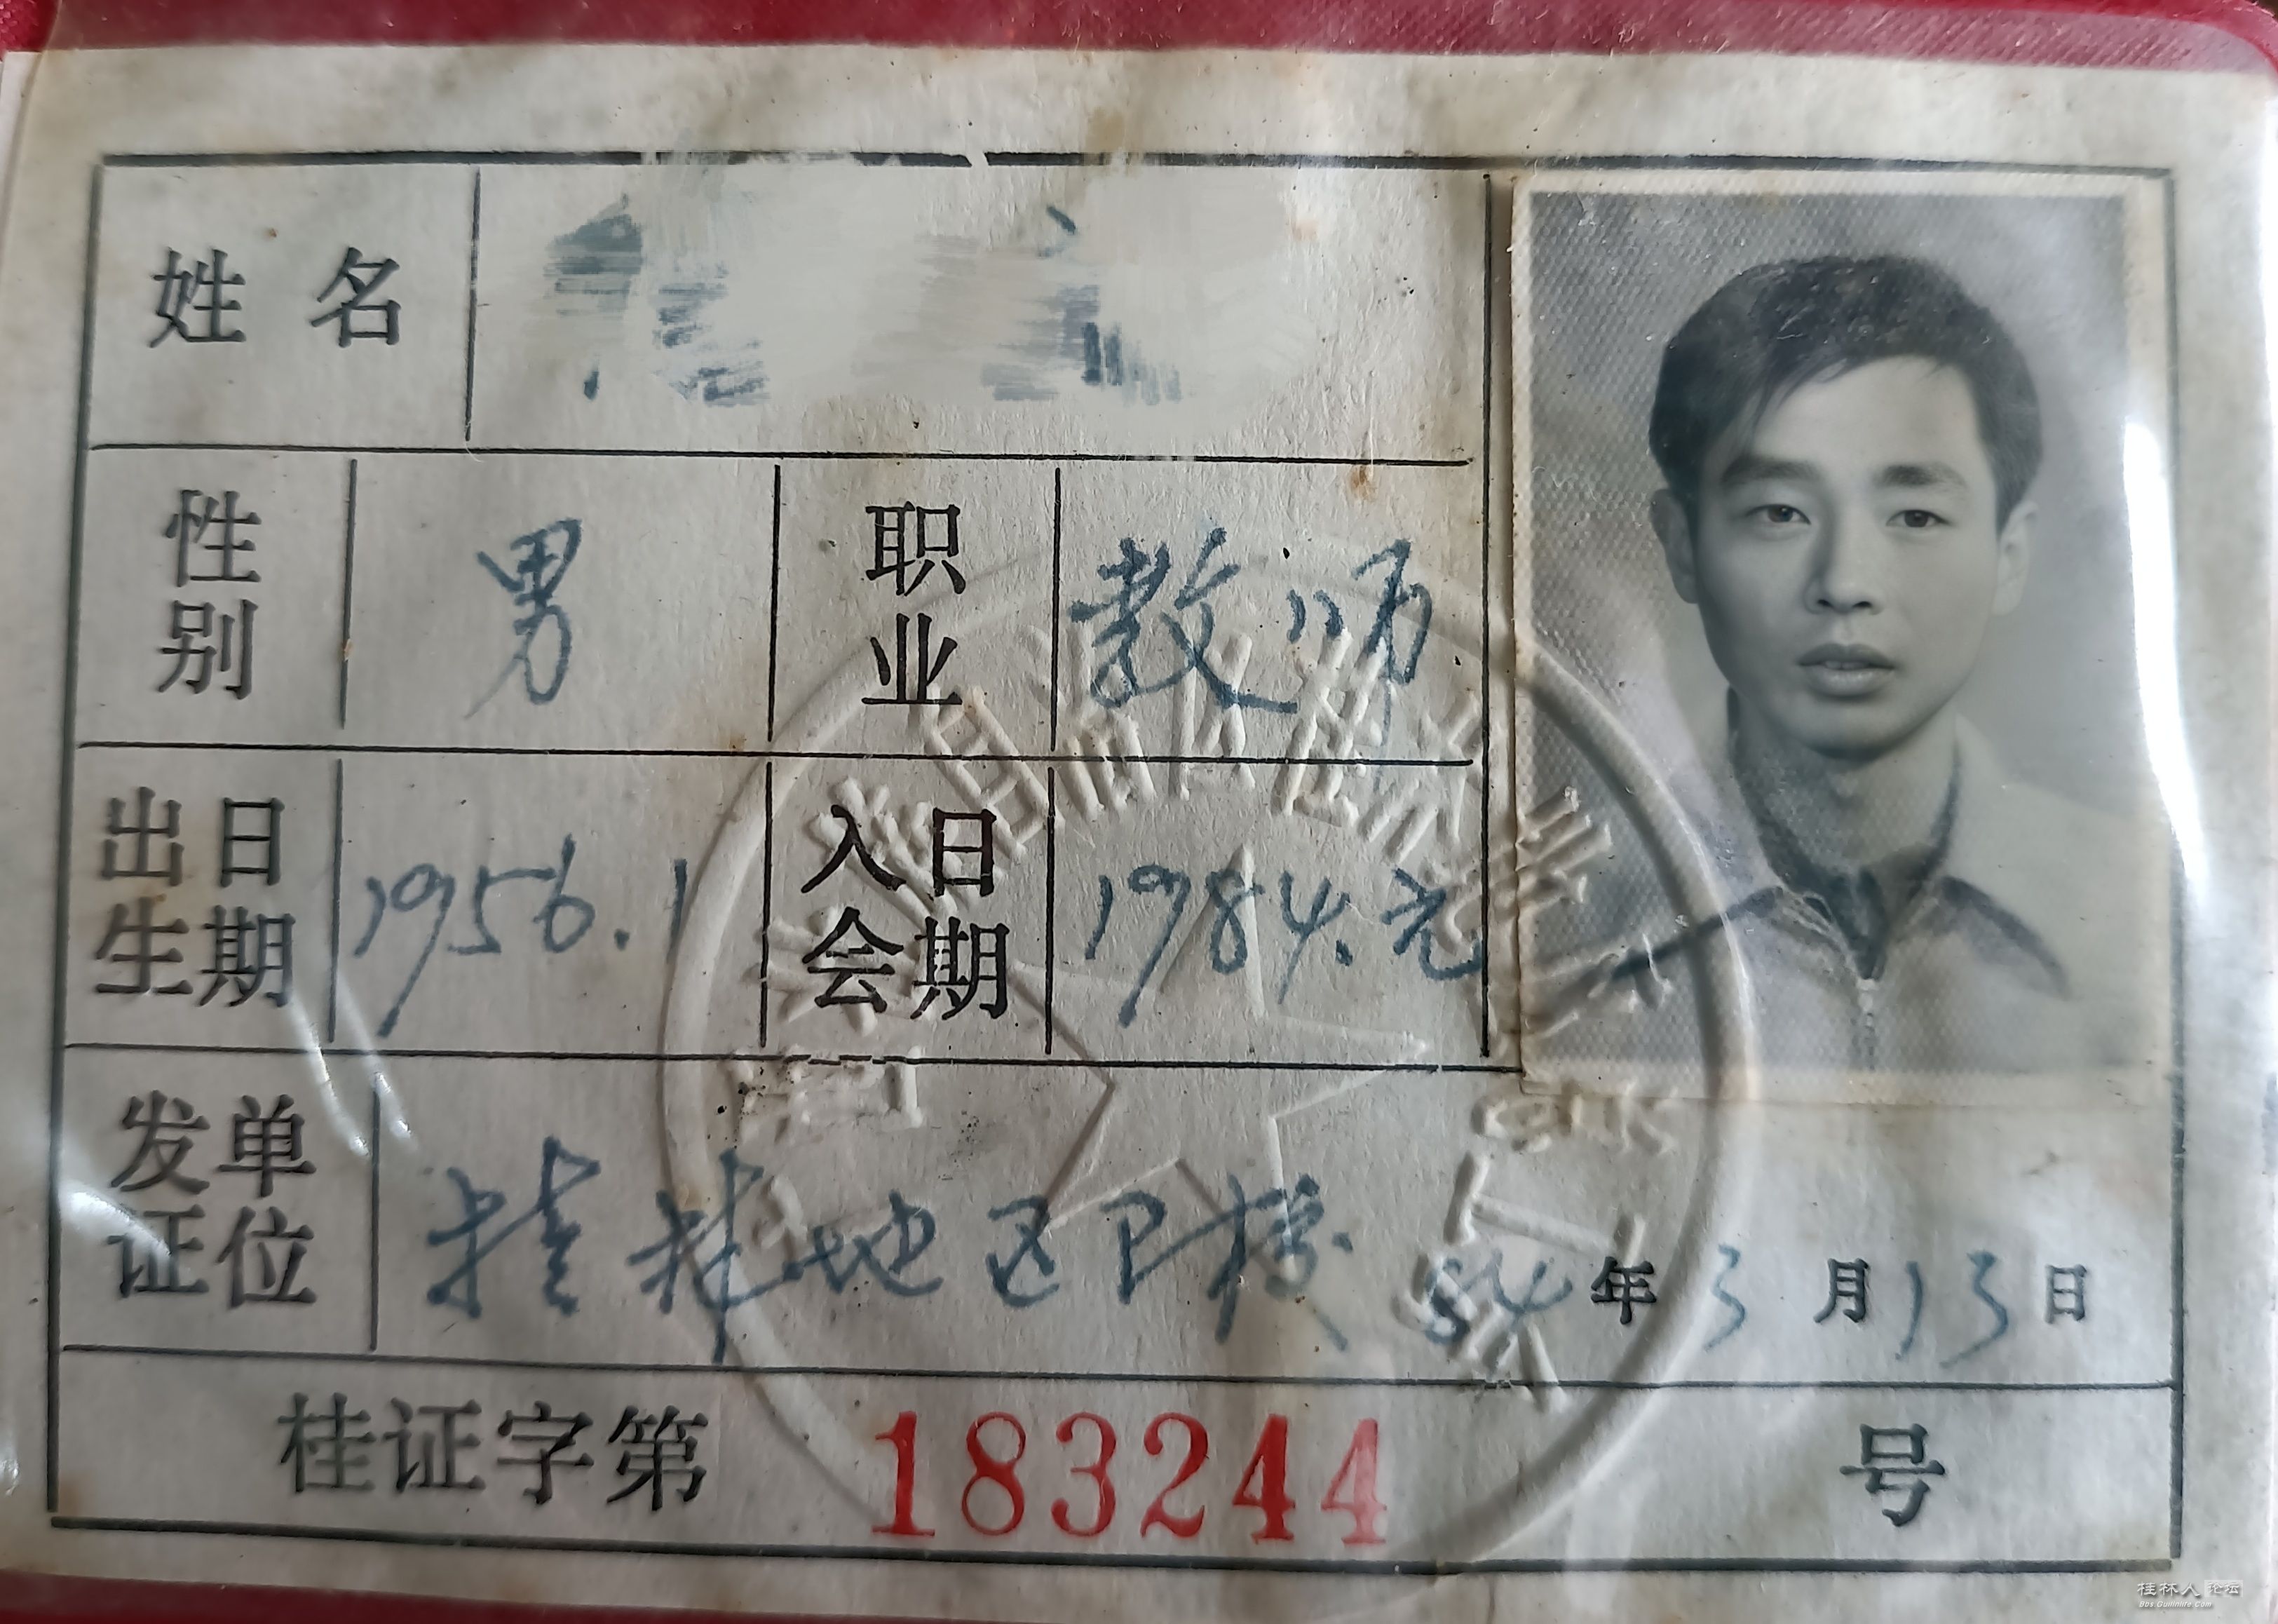 姓名
性别 男 职业 教师
出生日期 1956.1 入会日期 1984.元
发证单位 桂林地区卫校 84年3月13日
桂证字第 183244 号
桂林人论坛
Bbs.Guilinlife.Com